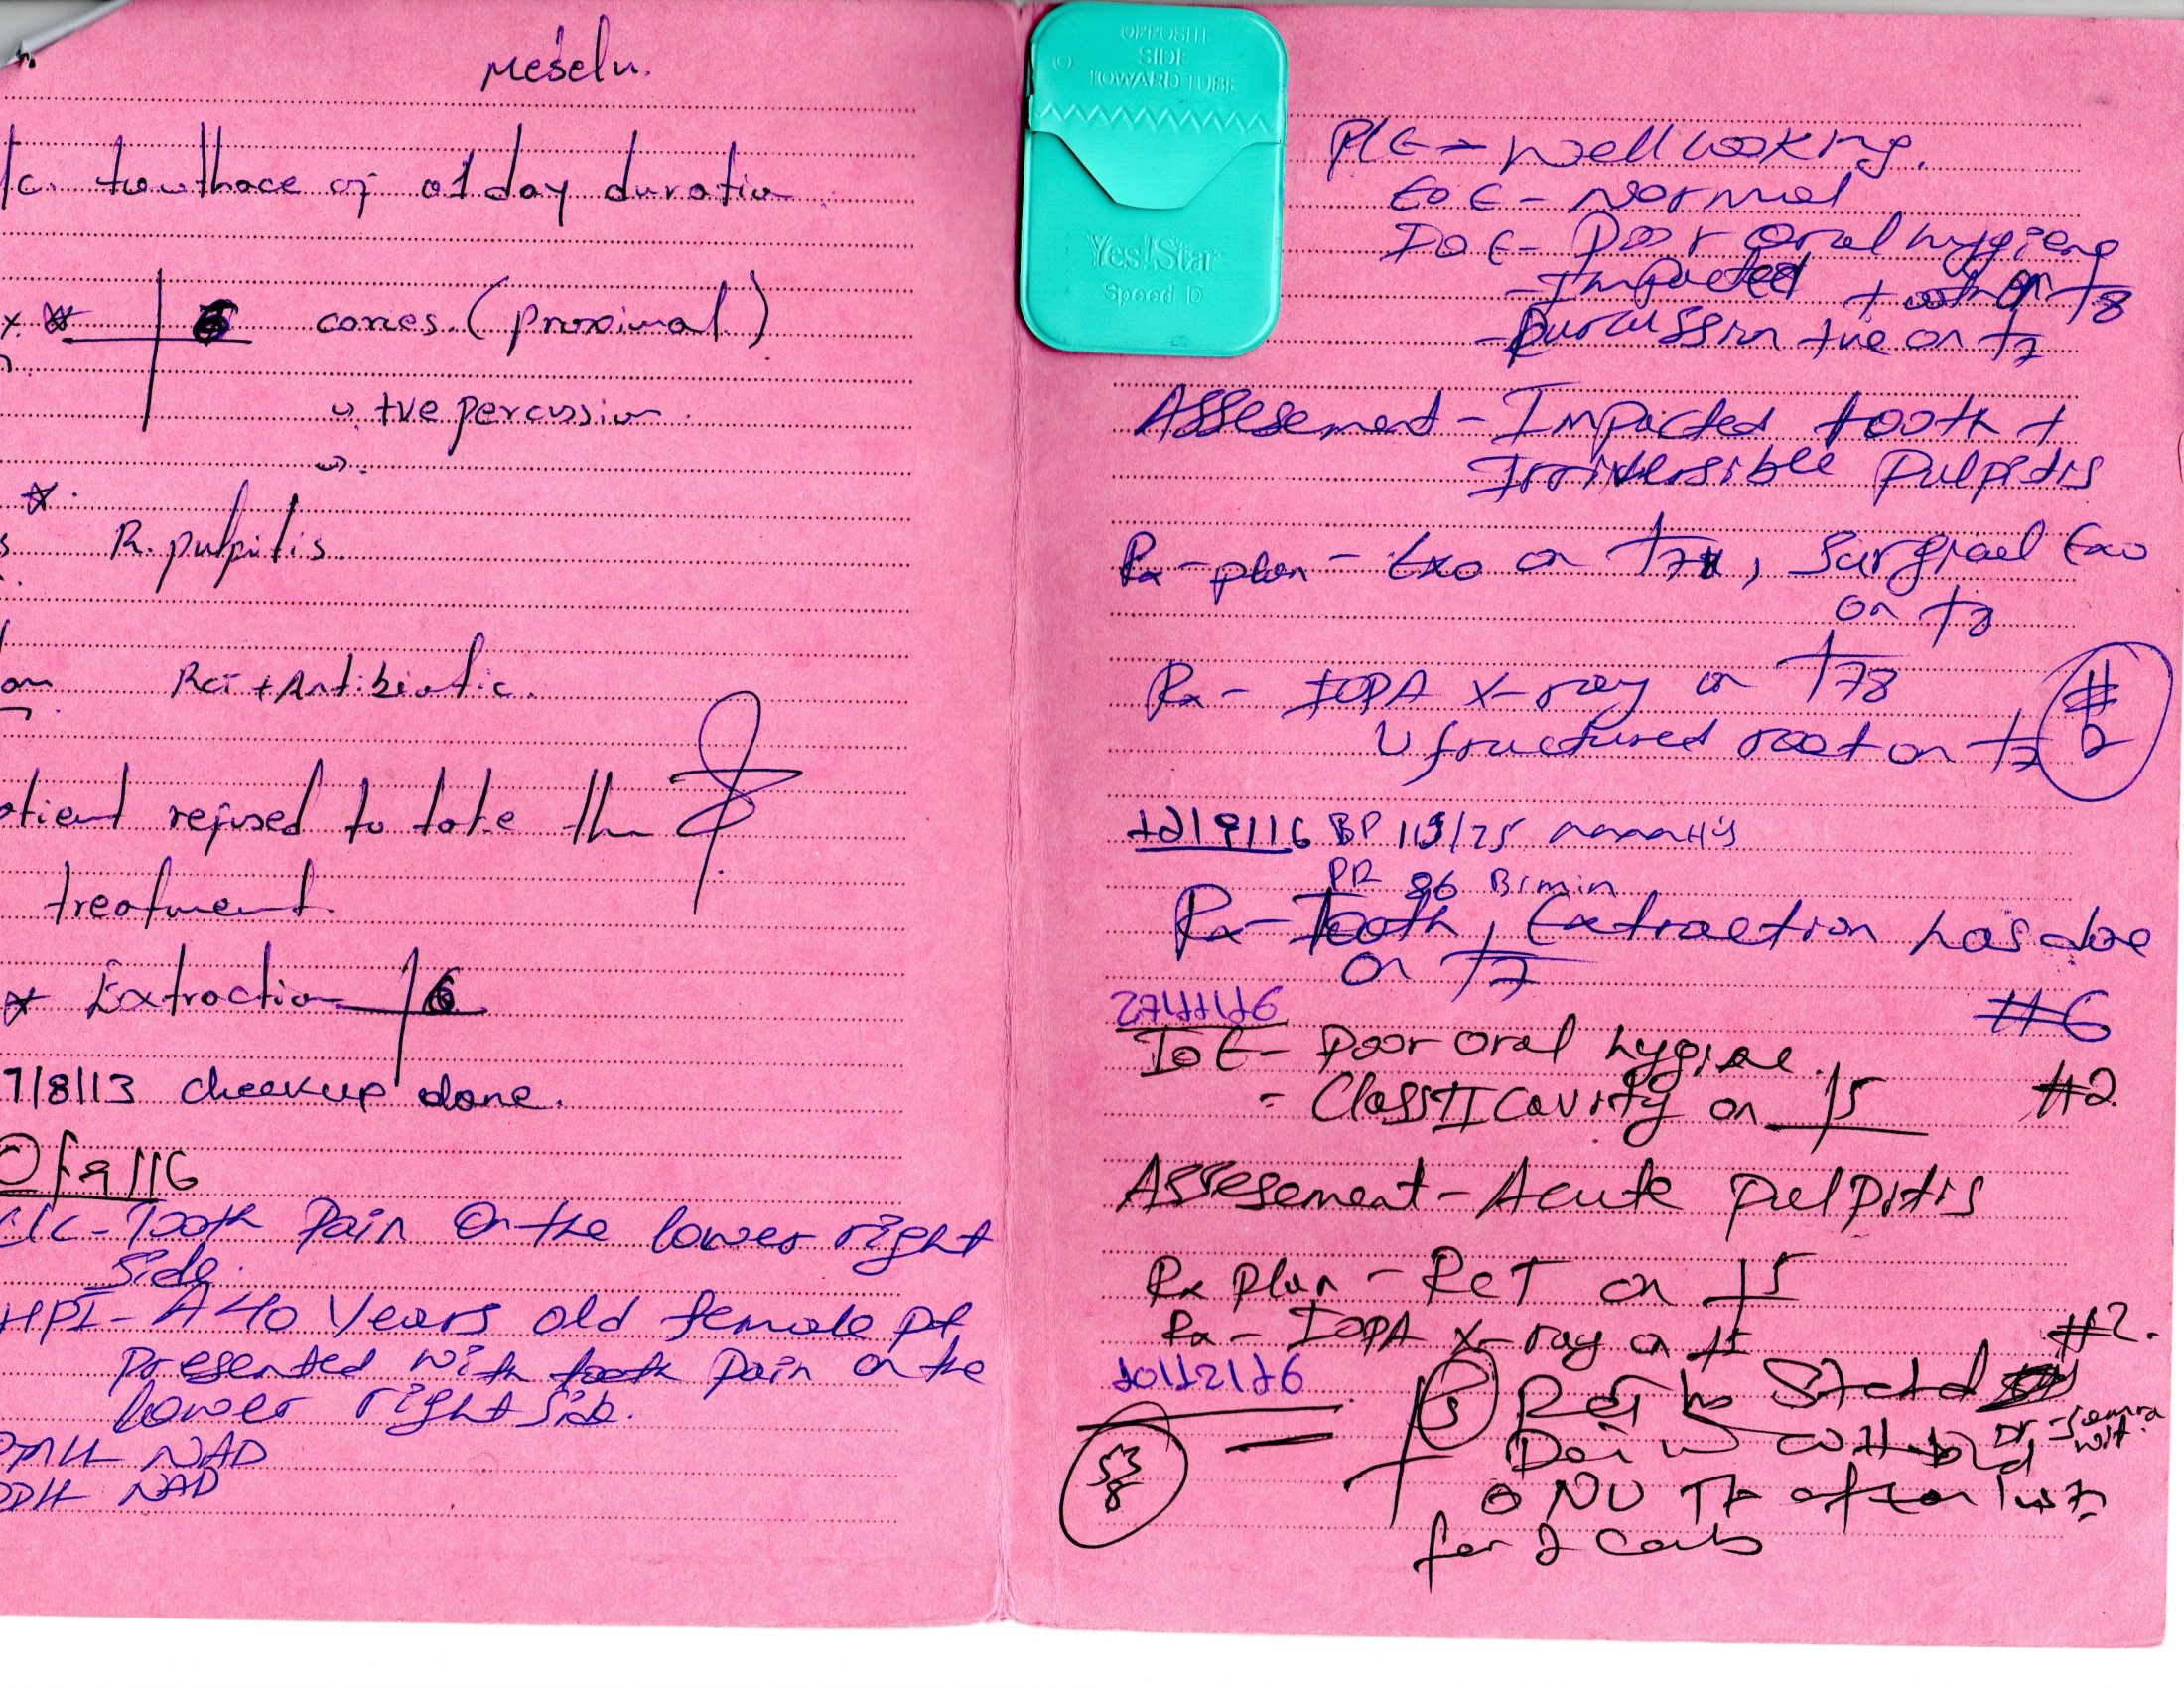 Meselu.
/c. toouthace of 01 day duration
6 caries. (proximal)
↳ +ve percussion.
R. pulpitis.
RCT + Antibiotic.
atient refused to take the
treatment.
* Extraction 6
7/8/13 checkup done.
9/16
C/C - Tooth Pain On the lower right
side.
HPI - A 40 Years old female pt
presented with tooth pain on the
lower right side.
PMH NAD
PDH NAD
OPPOSITE
SIDE
TOWARD TUBE
Yes!Star
Speed D
P/E - Well looking.
EOE - Normal
IOE - Poor oral hygiene
- Impacted tooth on 8
- Purcussion +ve on 7
Assesement - Impacted tooth +
Irriversible Pulpitis
Rx - plan - Exo on 7, Surgical Exo
on
Rx - IOPA X-ray on 78
fractured root on 7
#
2
12/9/16 BP 113/75 mmHg
PR 86 B/min
Rx - Tooth Extraction has doe
on 7
27/11/16 #6
IOE - Poor Oral hygiene.
- Class II Cavity on 5 #2
Assesement - Acute pulpitis
Rx Plan - RCT on 5
Rx - IOPA X-ray on 5 #2.
10/12/16
5
for 2 Cans